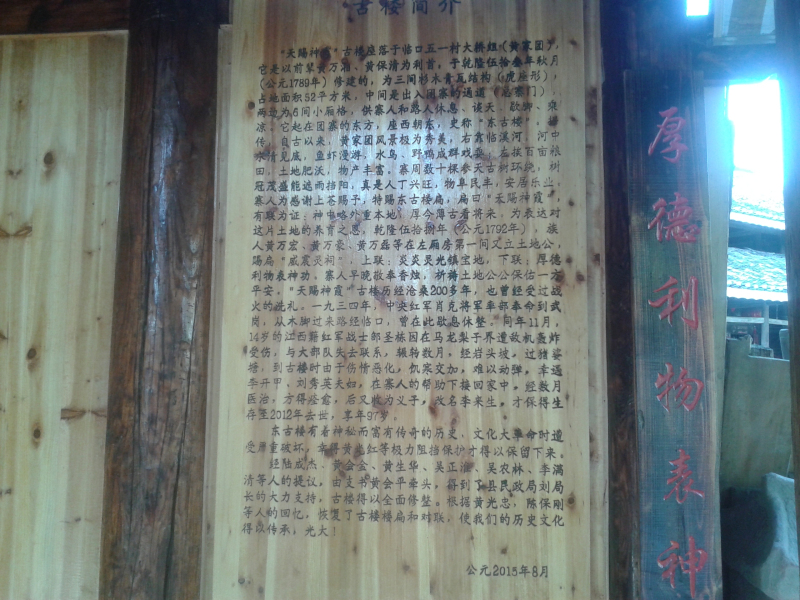 古楼简介
"天赐神霞"古楼座落于临口五一村大桥组（黄家团），
它是以前辈黄万湘、黄保清为利首，于乾隆伍拾叁年秋月
（公元1789年）修建的，为三间杉木青瓦结构（虎座形），
占地面积52平方米，中间是出入团寨的通道（总寨门），
两边为6间小厢格，供寨人和路人休息、谈天、歇脚、乘
凉。它起在团寨的东方，座西朝东，史称"东古楼"。据
传，自古以来，黄家团风景极为秀美，右靠临溪河，河中
水清见底，鱼虾漫游，水鸟、野鸭成群戏耍；左挨百亩粮
田，土地肥沃，物产丰富。寨周数十棵参天古树环绕，树
冠茂盛能遮雨挡阳，真是人丁兴旺，物阜民丰，安居乐业，
寨人为感谢上苍赐予，特赐东古楼扁，扁曰"天赐神霞"，
有联为证：神电略外重本地；厚今薄古看将来。为表达对
这片土地的养育之恩，乾隆伍拾捌年（公元1792年），族
人黄万宏、黄万豪、黄万磊等在左厢房第一间又立土地公，
赐扁"威震灵祠"，上联：炎炎灵光镇宝地，下联：厚德
利物表神功。寨人早晚敬奉香烛，祈祷土地公公保佑一方
平安。"天赐神霞"古楼历经沧桑200多年，也曾经受过战
火的洗礼。一九三四年，中央红军肖克将军率部奉命到武
岗，从木脚过来路经临口，曾在此歇息休整。同年11月，
14岁的江西籍红军战士郎圣栋因在马龙梨子界遭敌机轰炸
受伤，与大部队失去联系，辗转数月，经岩头坡，过猪婆
塘，到古楼时由于伤情恶化，饥寒交加，难以动弹，幸遇
李开甲、刘秀英夫妇，在寨人的帮助下接回家中，经数月
医治，方得痊愈，后又收为义子，改名李来生，才保得生
存至2012年去世，享年97岁。
东古楼有着神秘而富有传奇的历史，文化大革命时遭
受严重破坏，幸得黄光红等极力阻挡保护才得以保留下来。
经陆成杰、黄会金、黄生华、吴正淮、吴农林、李满
清等人的提议，由支书黄会平牵头，得到了县民政局刘局
长的大力支持，古楼得以全面修整。根据黄光忠、陈保刚
等人的回忆，恢复了古楼楼扁和对联，使我们的历史文化
得以传承，光大！
公元2013年8月
厚德利物表神